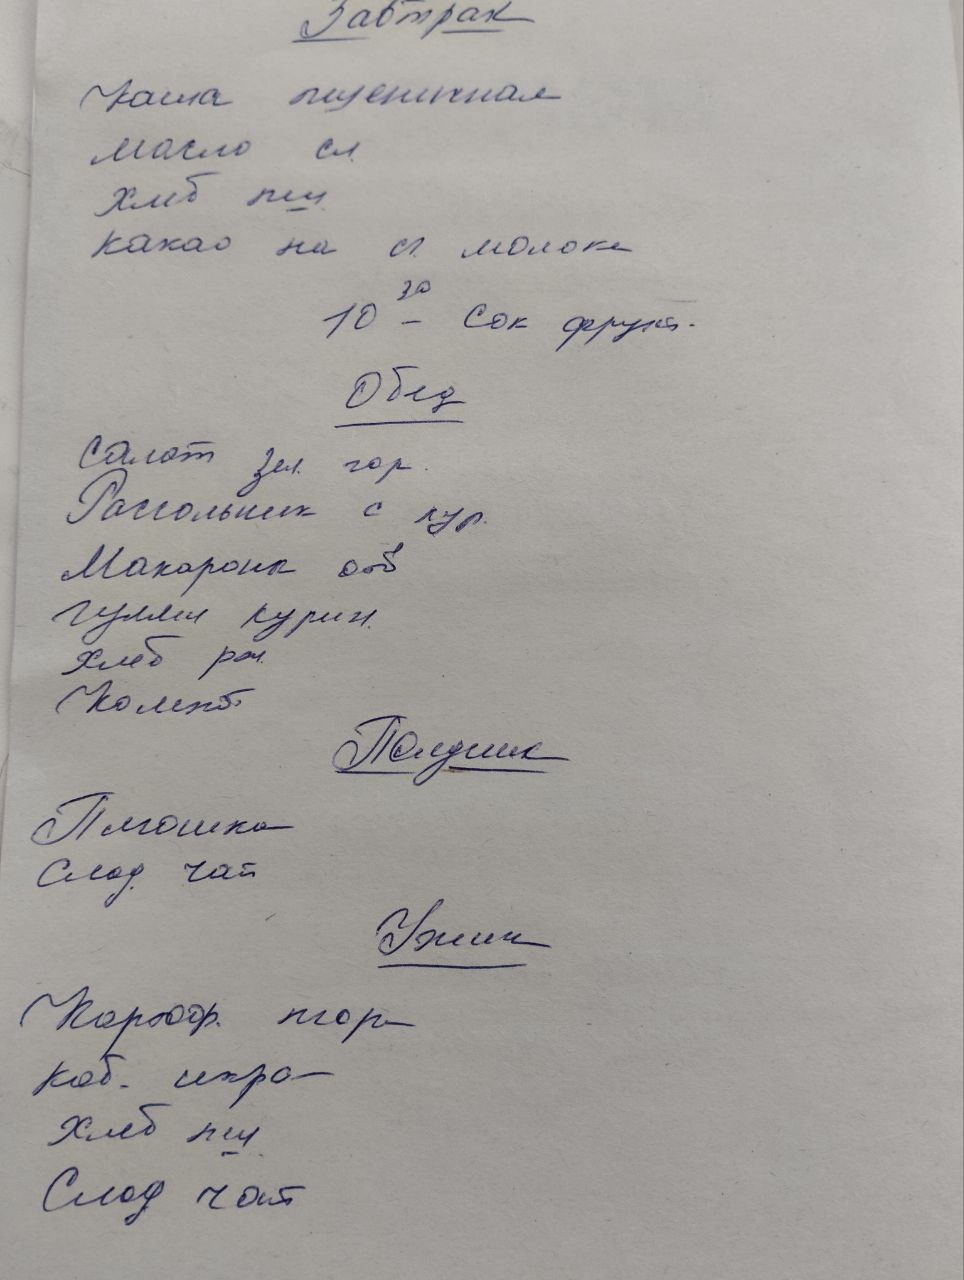 Завтрак
Каша пшеничная
масло сл.
Хлеб пш.
какао на сг. молоке
10 30 - Сок фрукт.
Обед
салат зел. гор.
Рассольник с кур.
Макароны отв
гуляш курин.
хлеб рж.
Компот
Полдник
Плюшка
Слад. чай
Ужин
Картоф. пюре
каб. икра
Хлеб пш.
Слад чай